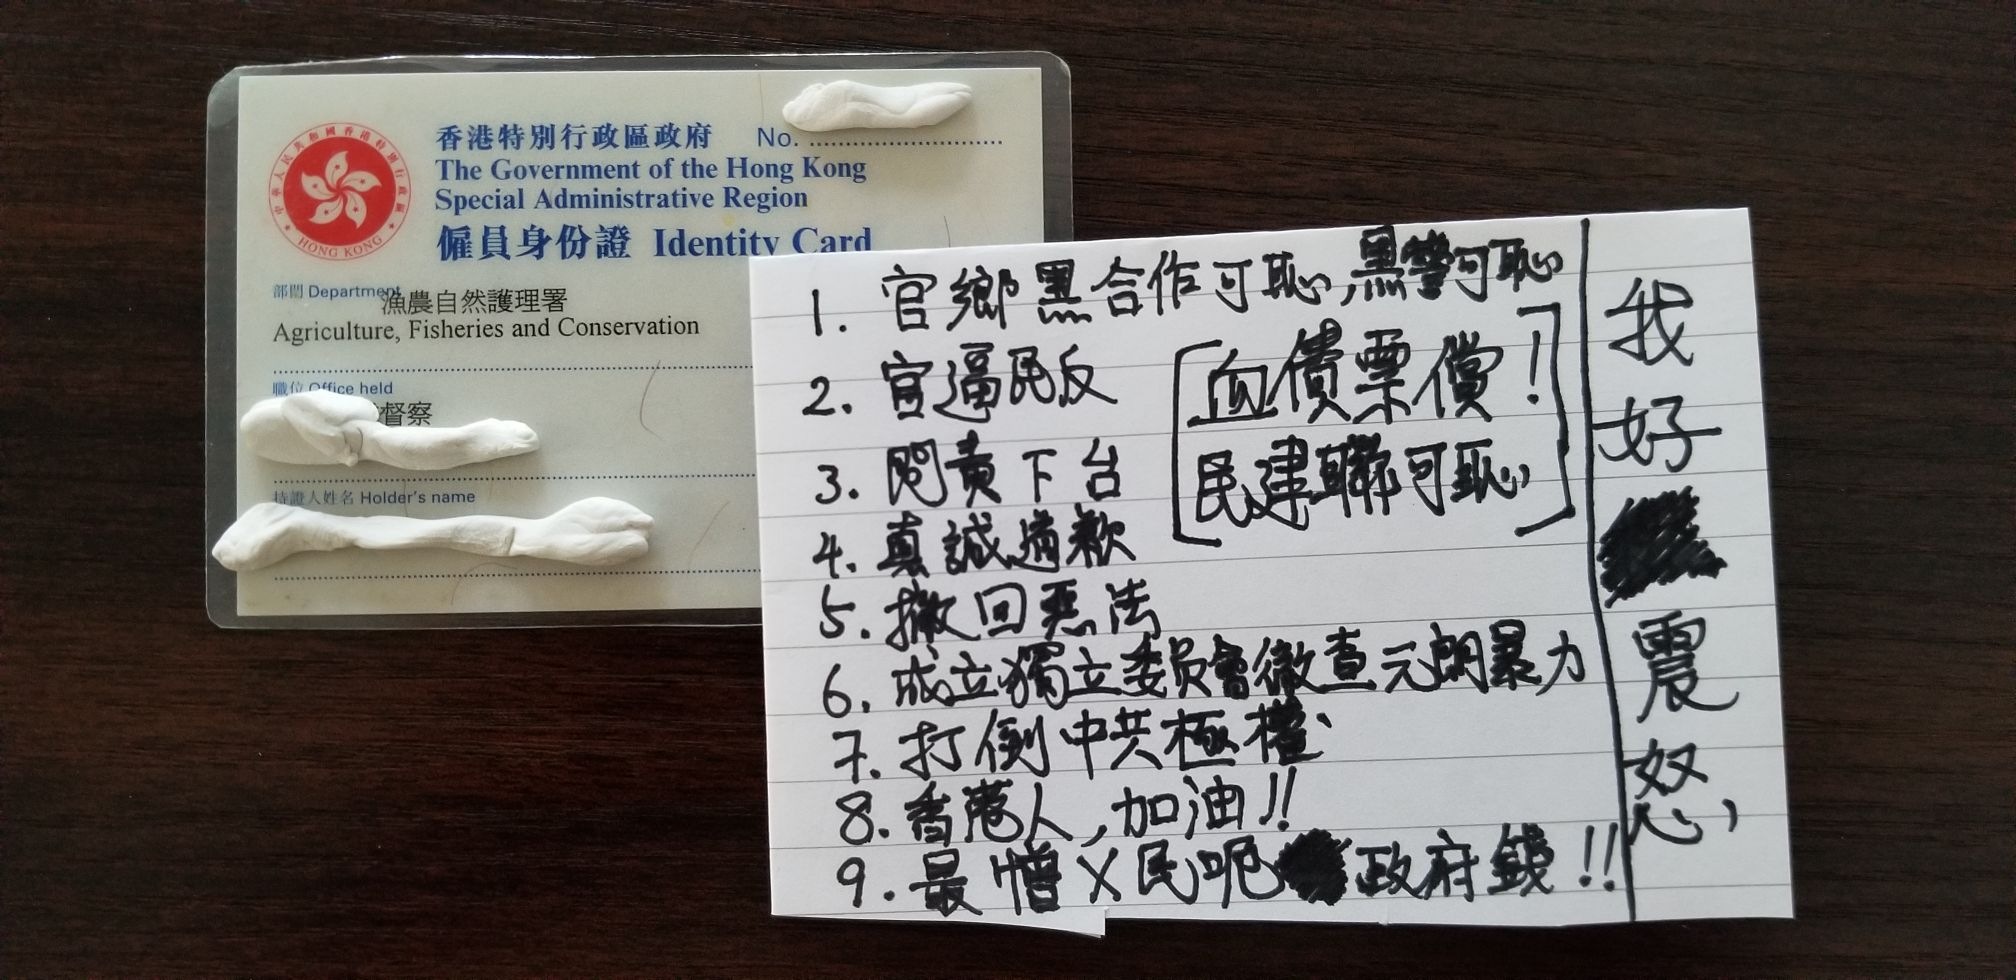 香港特別行政區政府 No.
The Government of the Hong Kong
Special Administrative Region
僱員身份證 Identity Card
中華人民共和國香港特別行政區
HONG KONG
部門 Department
漁農自然護理署
Agriculture, Fisheries and Conservation
職位 Office held
督察
持證人姓名 Holder's name
1. 官鄉黑合作可恥,黑警可恥
2. 官逼民反
[血債票償!
民建聯可恥]
3. 問責下台
4. 真誠道歉
5. 撤回惡法
6. 成立獨立委員會徹查元朗暴力
7. 打倒中共極權
8. 香港人,加油!!
9. 最憎X民呃政府錢!!
我好震怒